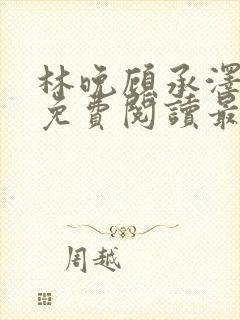 林晚顾承泽
免費閱讀最
周越